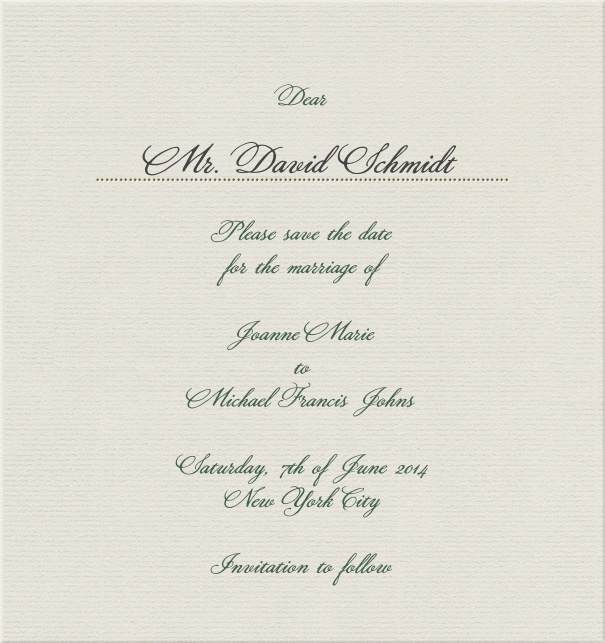 Dear
Mr. David Schmidt
Please save the date
for the marriage of
Joanne Marie
to
Michael Francis Johns
Saturday, 7th of June 2014
New York City
Invitation to follow